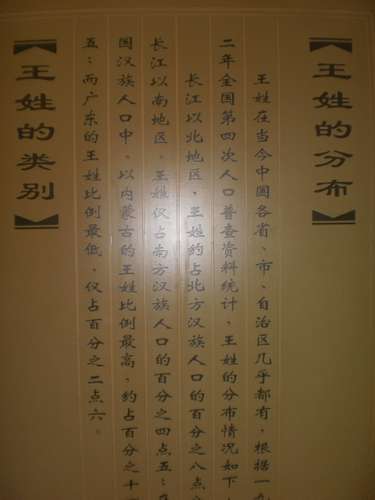 王姓的分布
王姓在当今中国各省、市、自治区几乎都有，根据一九
二年全国第四次人口普查资料统计，王姓的分布情况如下
长江以北地区，王姓约占北方汉族人口的百分之八点
长江以南地区，王姓仅占南方汉族人口的百分之四点五；
国汉族人口中，以内蒙古的王姓比例最高，约占百分之十
五；而广东的王姓比例最低，仅占百分之二点六。
王姓的类别